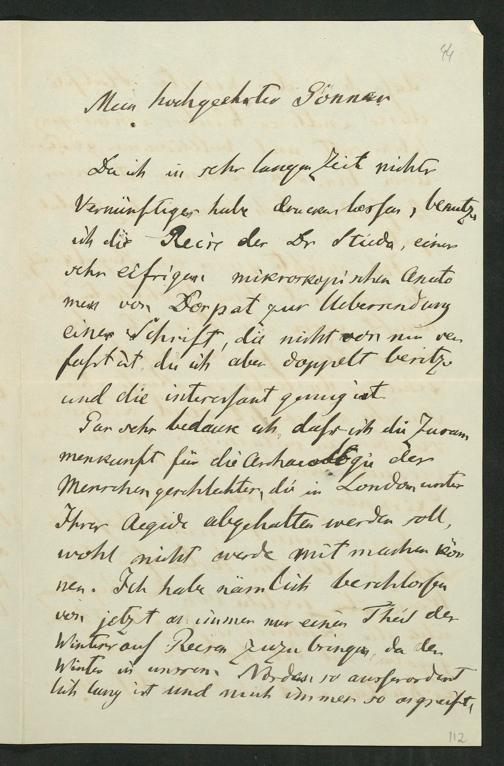 44
Mein hochgeehrter Gönner
Da ich in sehr langer Zeit nichts
Vernünftiges habe drucken lassen, benutze
ich die Reise des Dr Stieda, eines
sehr eifrigen mikroskopischen Anato
men von Dorpat zur Uebersendung
einer Schrift, die nicht von mir ver
faßt ist, die ich aber doppelt besitze
und die interessant genug ist.
Gar sehr bedaure ich, daß ich die Zusam
menkunft für die Archaeologie des
Menschengeschlechtes, die in London unter
Ihrer Aegide abgehalten werden soll,
wohl nicht werde mit machen kön
nen. Ich habe nämlich beschlossen
von jetzt an immer nur einen Theil des
Winters auf Reisen zuzubringen, da der
Winter in unserm Norden so ausserordent
lich lang ist und mich immer so angreift,
112